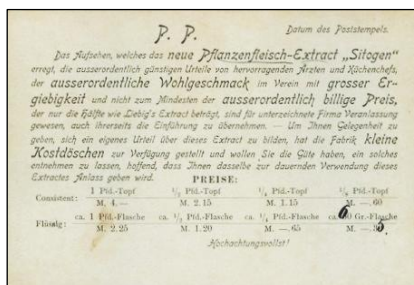 P. P.
Datum des Poststempels.
Das Aufsehen, welches das neue Pflanzenfleisch-Extract „Sitogen“
erregt, die ausserordentlich günstigen Urteile von hervorragenden Ärzten und Küchenchefs,
der ausserordentliche Wohlgeschmack im Verein mit grosser Er-
giebigkeit und nicht zum Mindesten der ausserordentlich billige Preis,
der nur die Hälfte wie Liebig's Extract beträgt, sind für unterzeichnete Firma Veranlassung
gewesen, auch ihrerseits die Einführung zu übernehmen. — Um Ihnen Gelegenheit zu
geben, sich ein eigenes Urteil über dieses Extract zu bilden, hat die Fabrik kleine
Kostdöschen zur Verfügung gestellt und wollen Sie die Güte haben, ein solches
entnehmen zu lassen, hoffend, dass Ihnen dasselbe zur dauernden Verwendung dieses
Extractes Anlass geben wird.
PREISE:
Consistent: 1 Pfd.-Topf ½ Pfd.-Topf ¼ Pfd.-Topf ⅛ Pfd.-Topf
M. 4.— M. 2.15 M. 1.15 M. —.60
Flüssig: ca. 1 Pfd.-Flasche ca. ½ Pfd.-Flasche ca. ¼ Pfd.-Flasche ca. 60 Gr.-Flasche
M. 2.25 M. 1.20 M. —.65 M. —.35
Hochachtungsvollst!